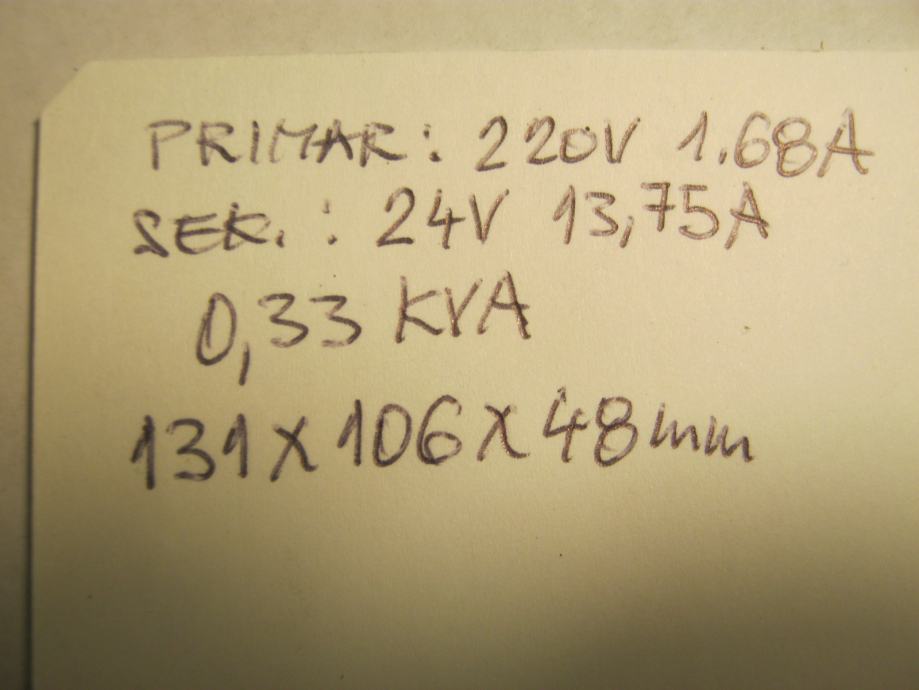 PRIMAR: 220V 1.68A
SEK.: 24V 13,75A
0,33 KVA
131 X 106 X 48mm